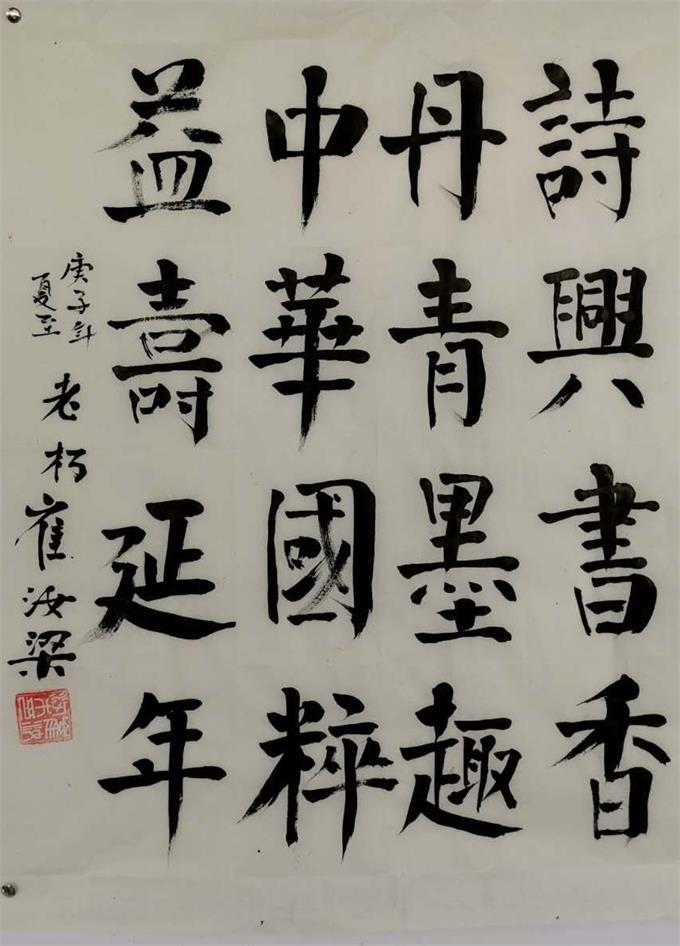 詩興書香
丹青墨趣
中華國粹
益壽延年
庚子年
夏至
老朽崔汝梁